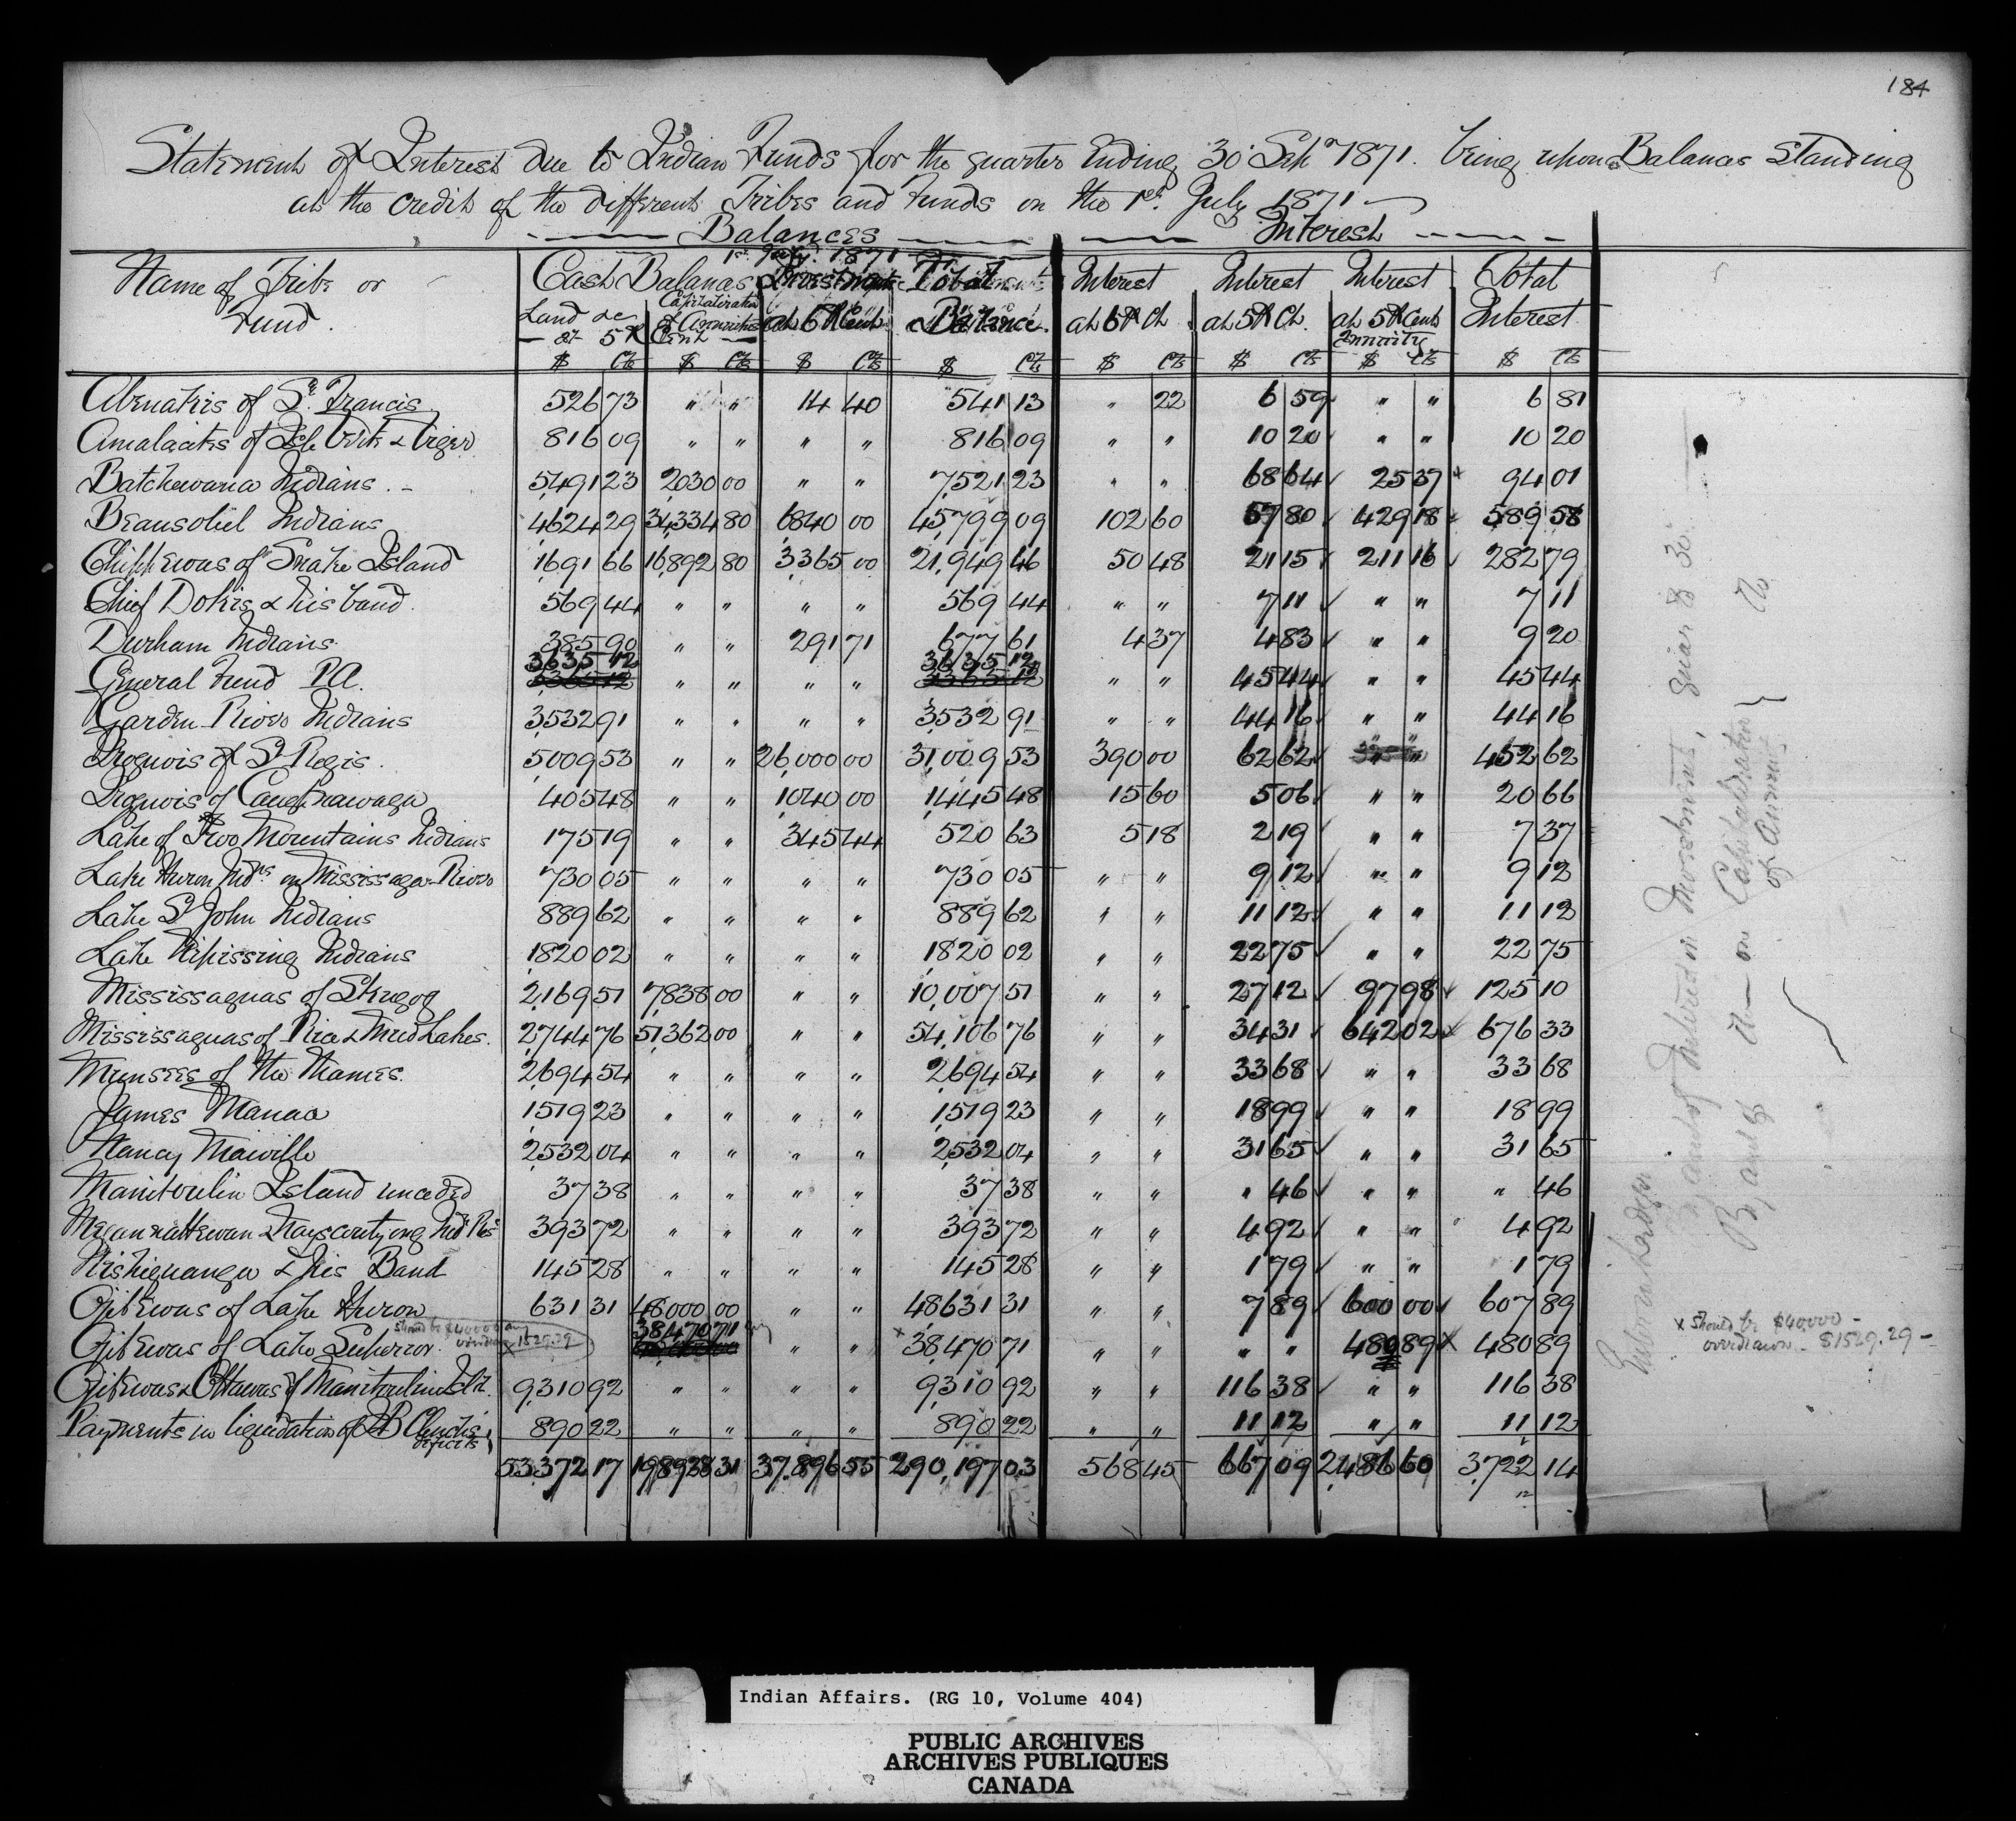 184
Statement of Interest due to Indian Funds for the quarter Ending 30 Sept 1871. being upon Balances standing
at the credit of the different Tribes and Funds on the 1st July 1871
Balances Interest
1st July 1871
Name of Tribe or Fund. Cash Balances Investments Total Interest Interest Interest Total
Land &c at 5 P Cent Capitalization of Annuities at 6 P Cent Balance. at 6 P Ct at 5 P Ct. at 5 P Cent Annuity Interest
$ Cts $ Cts $ Cts $ Cts $ Cts $ Cts $ Cts $ Cts
Abenakis of St Francis 526 73 " " 14 40 541 13 " 22 6 59 " " 6 81
Amalacites of Isle Verte & Viger 816 09 " " " " 816 09 " " 10 20 " " 10 20
Batchewana Indians. 5,491 23 2,030 00 " " 7,521 23 " " 68 64 25 37 94 01
Beausoliel Indians 4,624 29 34,334 80 6840 00 45,799 09 102 60 57 80 429 18 589 58
Chippewas of Snake Island 1,691 66 16,892 80 3,365 00 21,949 46 50 48 21 15 211 16 282 79
Chief Dokis & his band. 569 44 " " " " 569 44 " " 7 11 " " 7 11
Durham Indians 385 90 " " 291 71 677 61 4 37 4 83 " " 9 20
General Fund P.A. 3635 12 " " " " 3635 12 " " 45 44 " " 45 44
Garden River Indians 3,532 91 " " " " 3,532 91 " " 44 16 " " 44 16
Iroquois of St Regis. 5,009 53 " " 26,000 00 31,009 53 390 00 62 62 " " 452 62
Iroquois of Caughnawaga 405 48 " " 1040 00 1,445 48 15 60 5 06 " " 20 66
Lake of Two Mountains Indians 175 19 " " 345 44 520 63 5 18 2 19 " " 7 37
Lake Huron Inds on Mississaga River 730 05 " " " " 730 05 " " 9 12 " " 9 12
Lake St John Indians 889 62 " " " " 889 62 " " 11 12 " " 11 12
Lake Nipissing Indians 1,820 02 " " " " 1,820 02 " " 22 75 " " 22 75
Mississaguas of Skugog 2,169 51 7838 00 " " 10,007 51 " " 27 12 97 98 125 10
Mississaguas of Rice & Mud Lakes. 2,744 76 51,362 00 " " 54,106 76 " " 34 31 642 02 676 33
Munsees of the Thames. 2,694 54 " " " " 2,694 54 " " 33 68 " " 33 68
James Manace 1,519 23 " " " " 1,519 23 " " 18 99 " " 18 99
Nancy Maiville 2,532 04 " " " " 2,532 04 " " 31 65 " " 31 65
Manitoulin Island unceded 37 38 " " " " 37 38 " " " 46 " " " 46
393 72 " " " " 393 72 " " 4 92 " " 4 92
& his Band 145 28 " " " " 145 28 " " 1 79 " " 1 79
Ojibewas of Lake Huron 631 31 48,000 00 " " 48,631 31 " " 7 89 600 00 607 89
should be $40000 overdrawn x 1529.29
Ojibewas of Lake Superior. 38,470 71 " " x 38,470 71 " " " " 480 89 x 480 89
x should be $40,000 -
overdrawn - $1529.29 -
Ojibewas & Ottawas of Manitoulin Isld. 9,310 92 " " " " 9,310 92 " " 116 38 " " 116 38
Payments in liquidation of JB Clench's deficit 890 22 " " " " 890 22 " " 11 12 " " 11 12
53,372 17 198,928 31 37,896 55 290,197 03 568 45 667 09 2,486 60 3,722 14
Indian Affairs. (RG 10, Volume 404)
PUBLIC ARCHIVES
ARCHIVES PUBLIQUES
CANADA